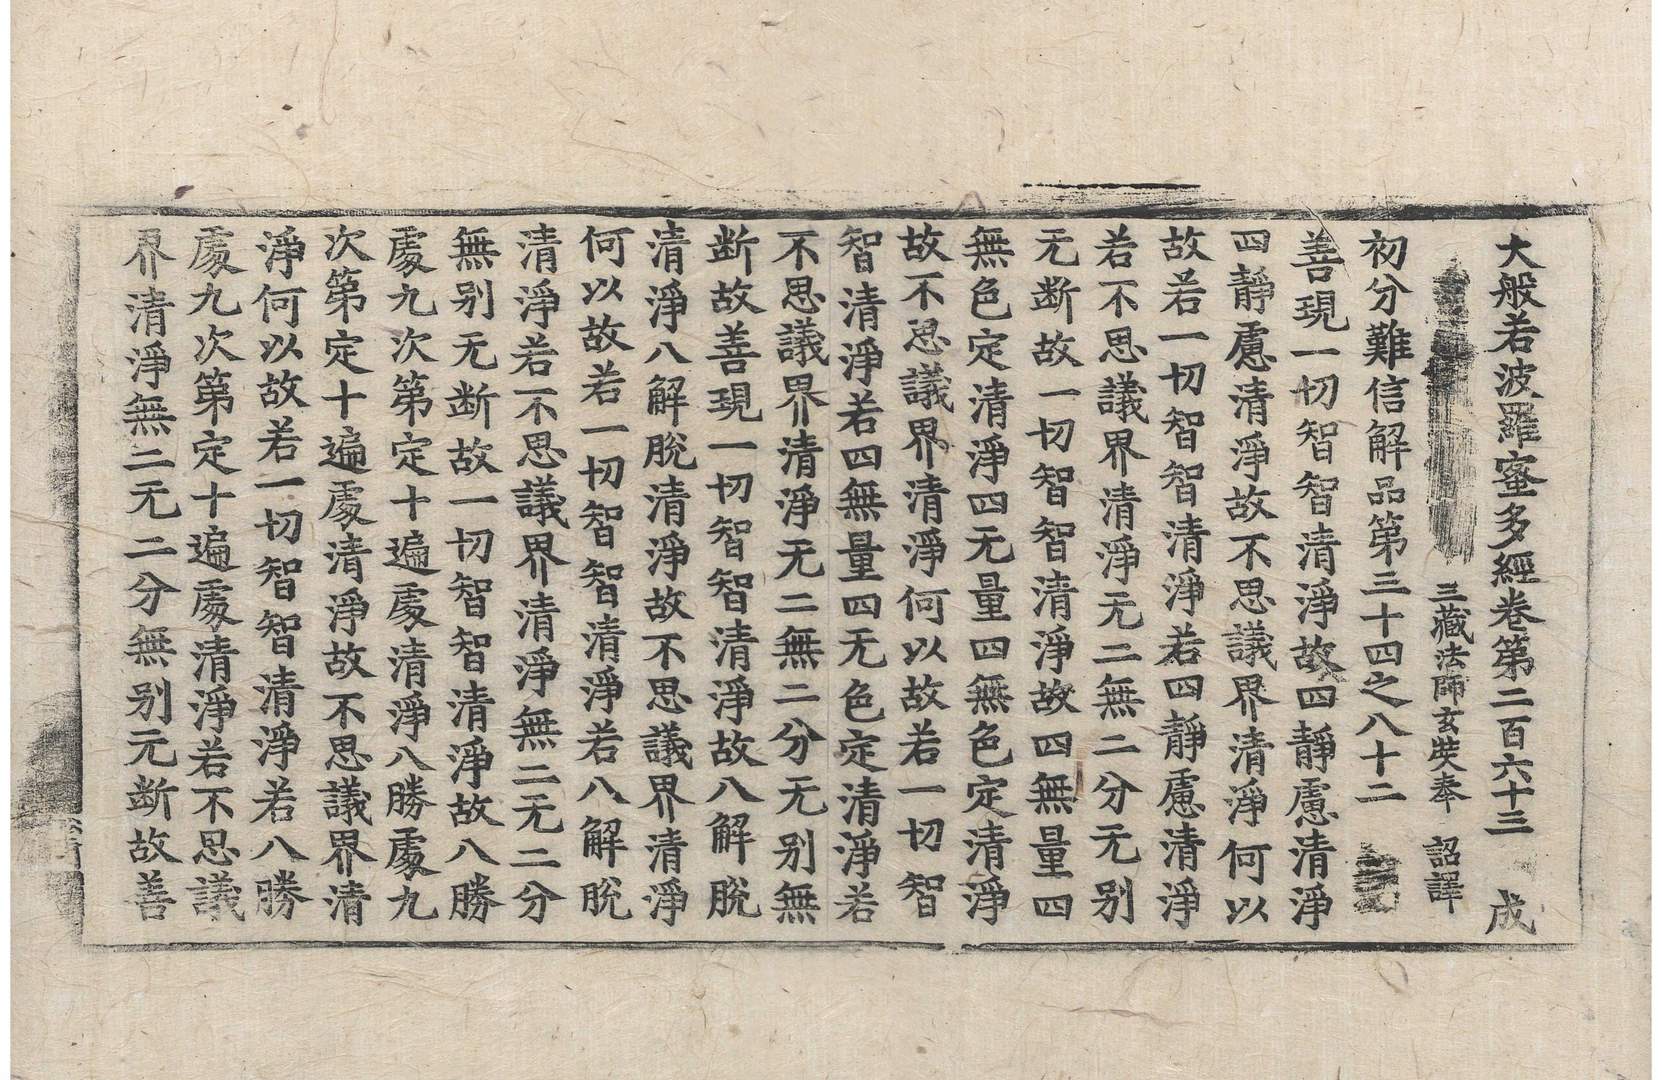 大般若波羅蜜多經卷第二百六十三　成
三藏法師玄奘奉　詔譯
初分難信解品第三十四之八十二
善現一切智智清淨故四靜慮清淨
四靜慮清淨故不思議界清淨何以
故若一切智智清淨若四靜慮清淨
若不思議界清淨无二無二分无别
无断故一切智智清淨故四無量四
無色定清淨四无量四無色定清淨
故不思議界清淨何以故若一切智
智清淨若四無量四无色定清淨若
不思議界清淨无二無二分无别無
断故善現一切智智清淨故八解脫
清淨八解脫清淨故不思議界清淨
何以故若一切智智清淨若八解脫
清淨若不思議界清淨無二无二分
無别无断故一切智智清淨故八勝
處九次第定十遍處清淨八勝處九
次第定十遍處清淨故不思議界清
淨何以故若一切智智清淨若八勝
處九次第定十遍處清淨若不思議
界清淨無二无二分無别无断故善